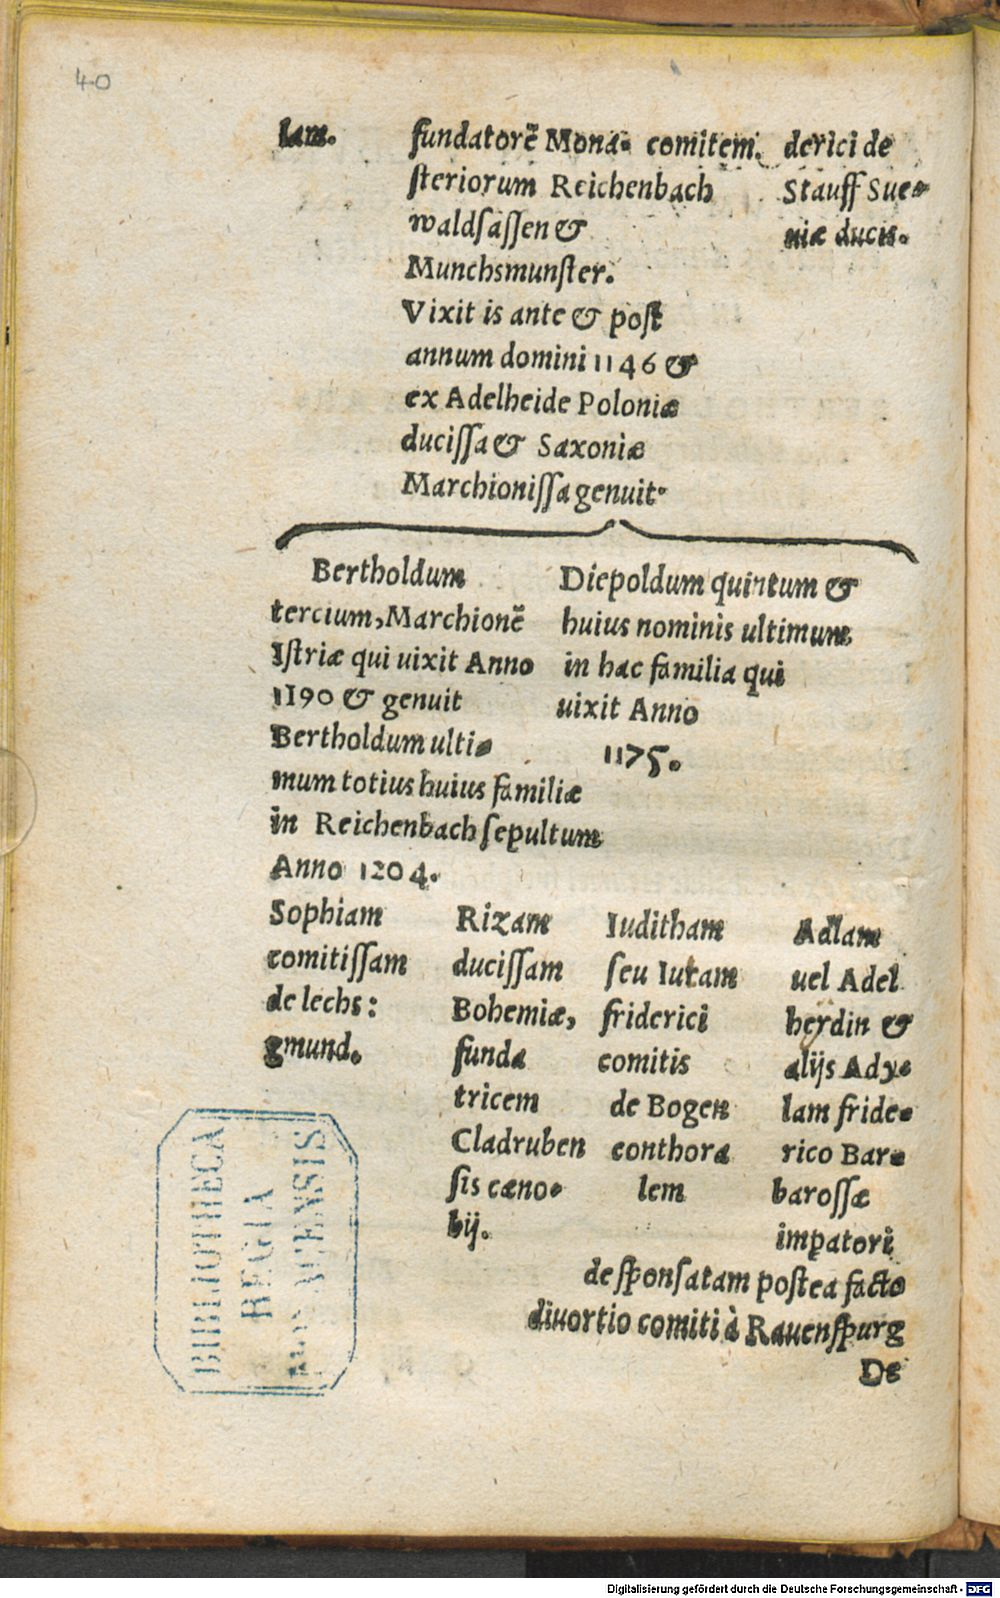 40
lam. fundatorē Mona- comitem. derici de
ſteriorum Reichenbach Stauff Sue-
waldſaſſen & uiæ ducis.
Munchsmunſter.
Vixit is ante & poſt
annum domini 1146 &
ex Adelheide Poloniæ
duciſſa & Saxoniæ
Marchioniſſa genuit.
Bertholdum
tercium, Marchionē
Iſtriæ qui uixit Anno
1190 & genuit
Bertholdum ulti-
mum totius huius familiæ
in Reichenbach ſepultum
Anno 1204.
Diepoldum quintum &
huius nominis ultimum
in hac familia qui
uixit Anno
1175.
Sophiam
comitiſſam
de lechs:
gmund.
Rizam
duciſſam
Bohemiæ,
funda
tricem
Cladruben
ſis cæno-
bij.
Iuditham
ſeu Iutam
friderici
comitis
de Bogen
conthora
lem
Adlam
uel Adel
heydin &
alijs Ady-
lam fride-
rico Bar-
baroſſæ
imꝑatori
deſponſatam poſtea facto
diuortio comiti à Rauenſpurg
De
BIBLIOTHECA
REGIA
Digitalisierung gefördert durch die Deutsche Forschungsgemeinschaft - DFG